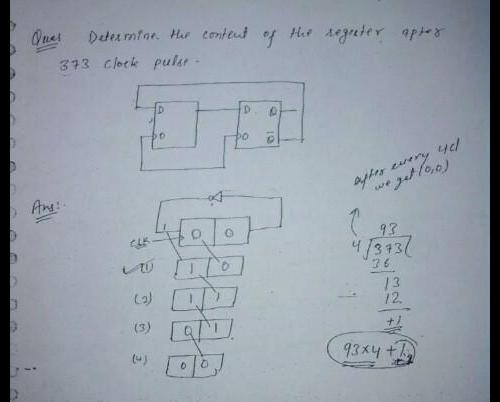 Ques Determine the content of the register after
373 clock pulse.
D D Q
Q̅
after every 4 cl
we get (0,0)
Ans:
93
4 373
CLK 0 0
36
(1) 1 0
13
(2) 1 1
12
+1
(3) 0 1
93×4 + 1
(4) 0 0